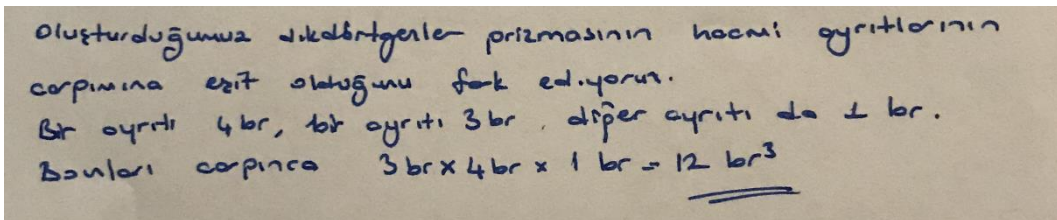 Oluşturduğumuz dikdörtgenler prizmasının hacmi ayrıtlarının
çarpımına eşit olduğunu fark ediyoruz.
Bir ayrıtı 4 br, bir ayrıtı 3 br, diğer ayrıtı da 1 br.
Bunları çarpınca 3 br x 4 br x 1 br = 12 br³